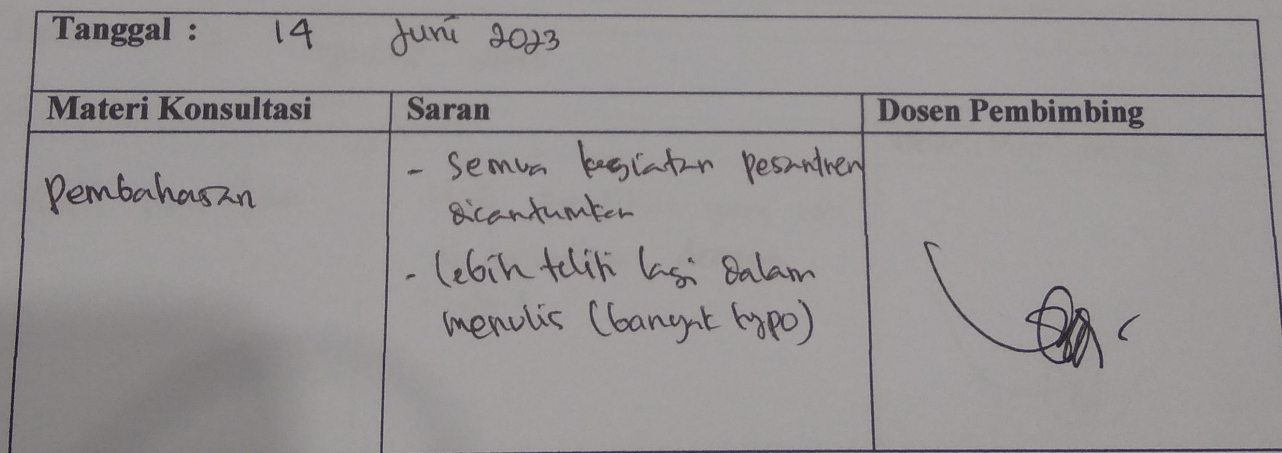 Tanggal : 14 Juni 2023
Materi Konsultasi Saran Dosen Pembimbing
Pembahasan
- Semua kegiatan pesantren
dicantumkan
- lebih teliti lagi dalam
menulis (banyak typo)